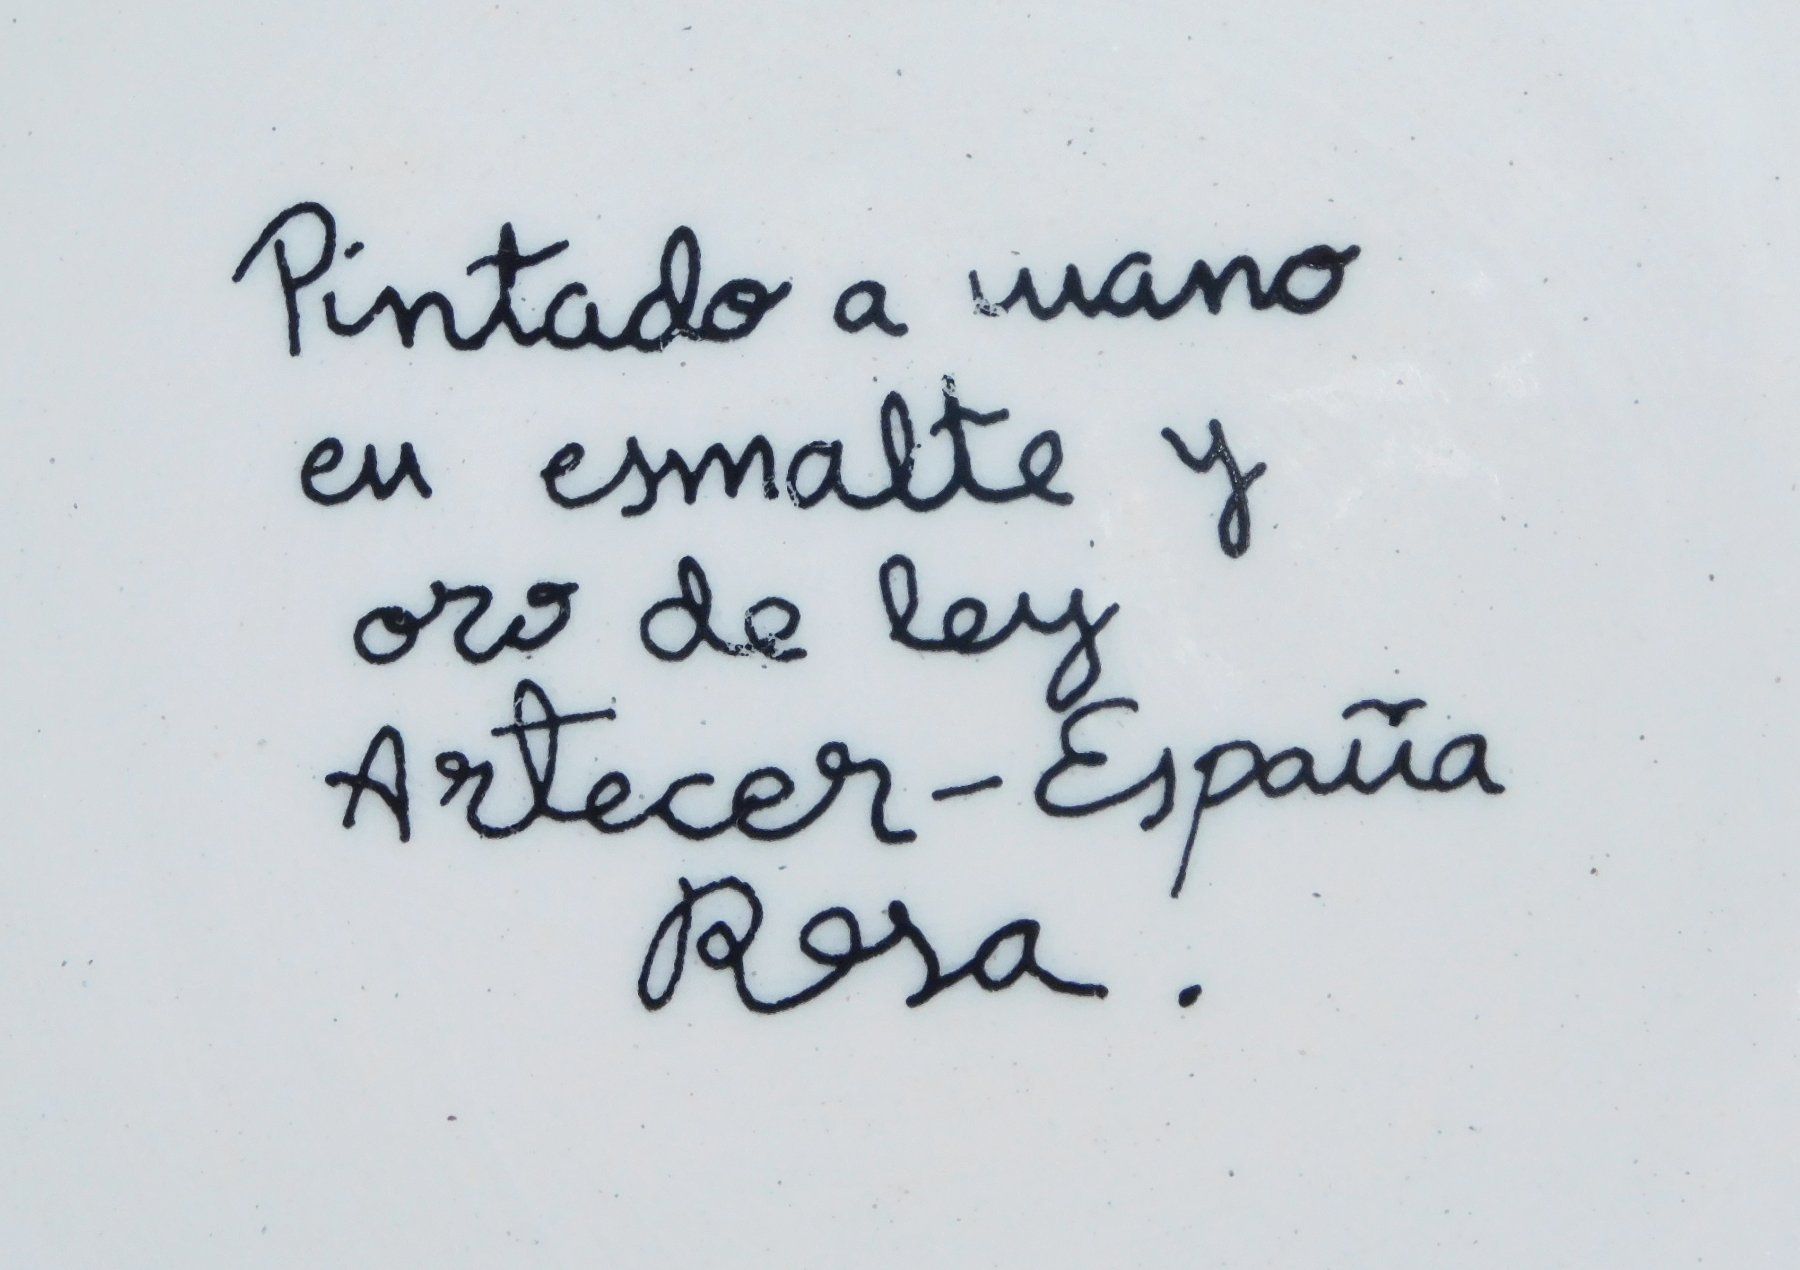 Pintado a mano
en esmalte y
oro de ley
Artecer-España
Rosa.